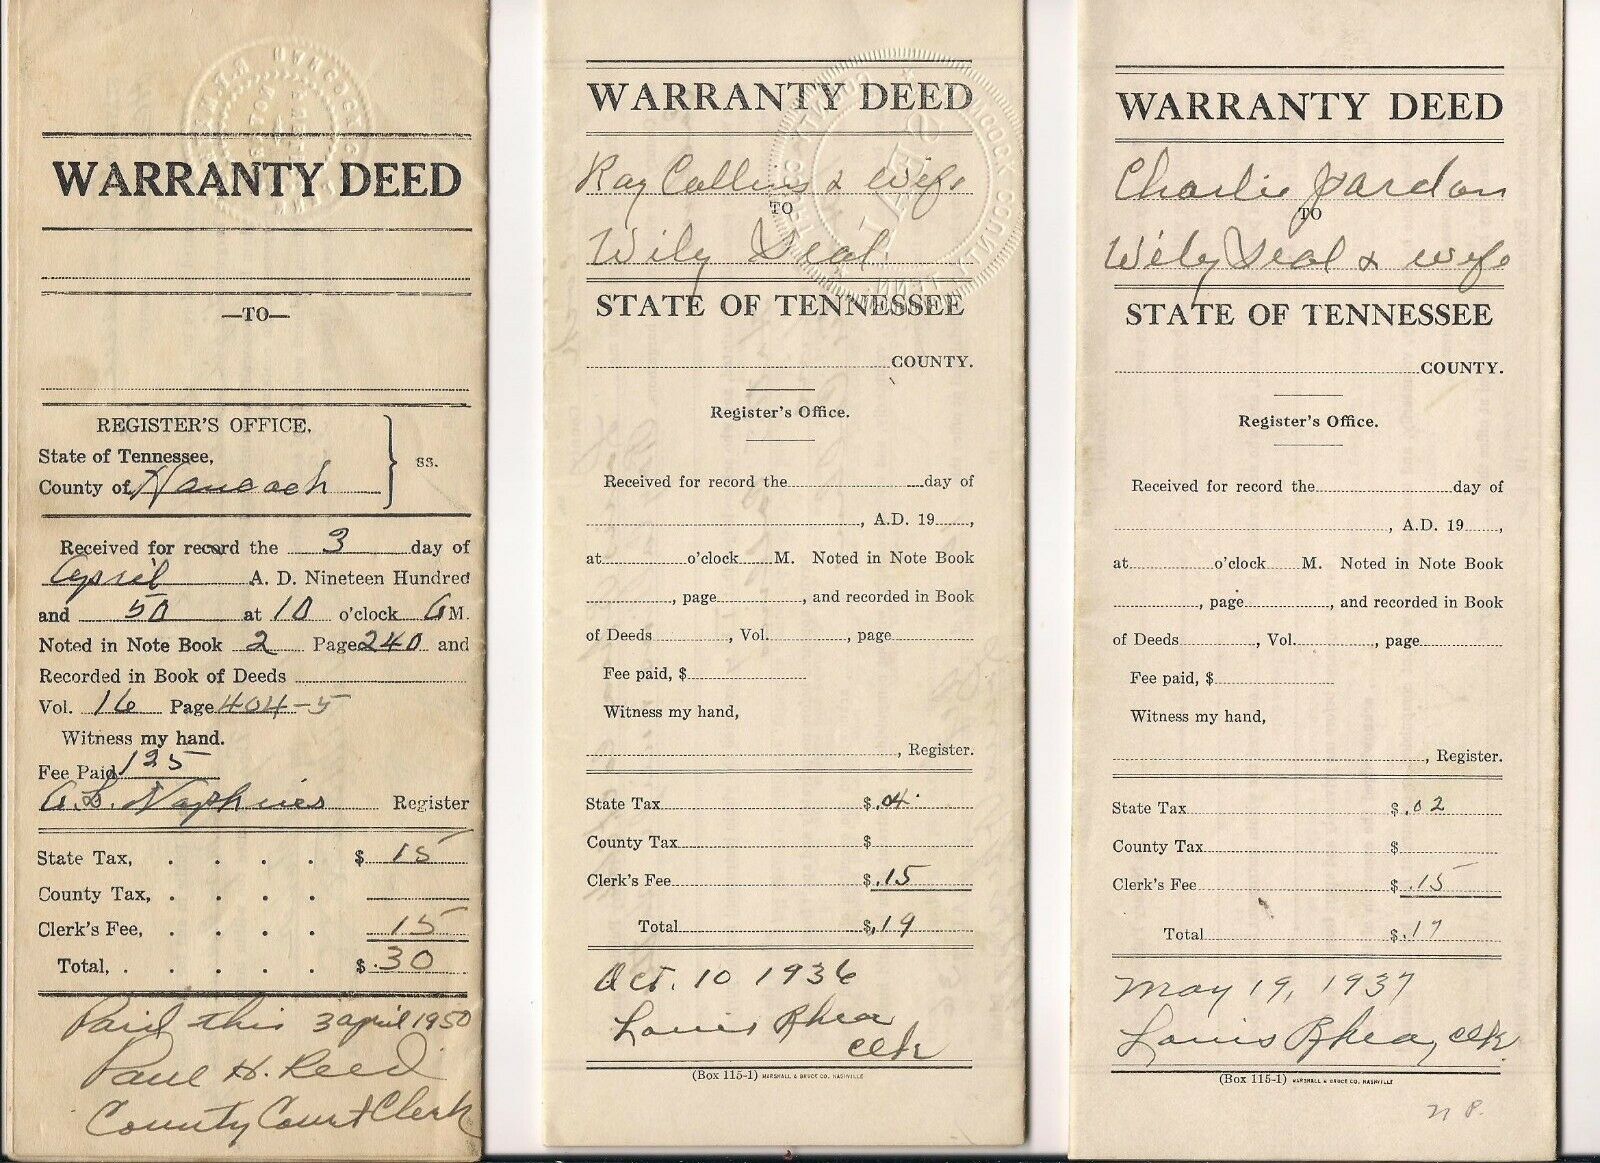 WARRANTY DEED
—TO—
REGISTER'S OFFICE,
State of Tennessee,
County of Hancock
ss.
Received for record the 3 day of
April A. D. Nineteen Hundred
and 50 at 10 o'clock A M.
Noted in Note Book 2 Page 240 and
Recorded in Book of Deeds
Vol. 16 Page 404-5
Witness my hand.
Fee Paid 125
Register
State Tax, . . . . $ 15
County Tax, . . . .
Clerk's Fee, . . . . 15
Total, . . . . $ .30
Paid this 3 april 1950
Paul H. Reed
County Court Clerk
WARRANTY DEED
Ray Collins & wife
TO
Wily Seal
STATE OF TENNESSEE
COUNTY.
Register's Office.
Received for record the day of
, A.D. 19 ,
at o'clock M. Noted in Note Book
, page , and recorded in Book
of Deeds , Vol. , page
Fee paid, $
Witness my hand,
, Register.
State Tax $ .04
County Tax $
Clerk's Fee $ .15
Total $ .19
Oct. 10 1936
Louis Rhea
Clk
(Box 115-1) MARSHALL & BRUCE CO. NASHVILLE
SEAL
WARRANTY DEED
Charlie Jardon
TO
Wiley Seal & wife
STATE OF TENNESSEE
COUNTY.
Register's Office.
Received for record the day of
, A.D. 19 ,
at o'clock M. Noted in Note Book
, page , and recorded in Book
of Deeds , Vol. , page
Fee paid, $
Witness my hand,
, Register.
State Tax $ .02
County Tax $
Clerk's Fee $ .15
Total $ .17
May 19, 1937
Louis Rhea, Clk
(Box 115-1) MARSHALL & BRUCE CO. NASHVILLE